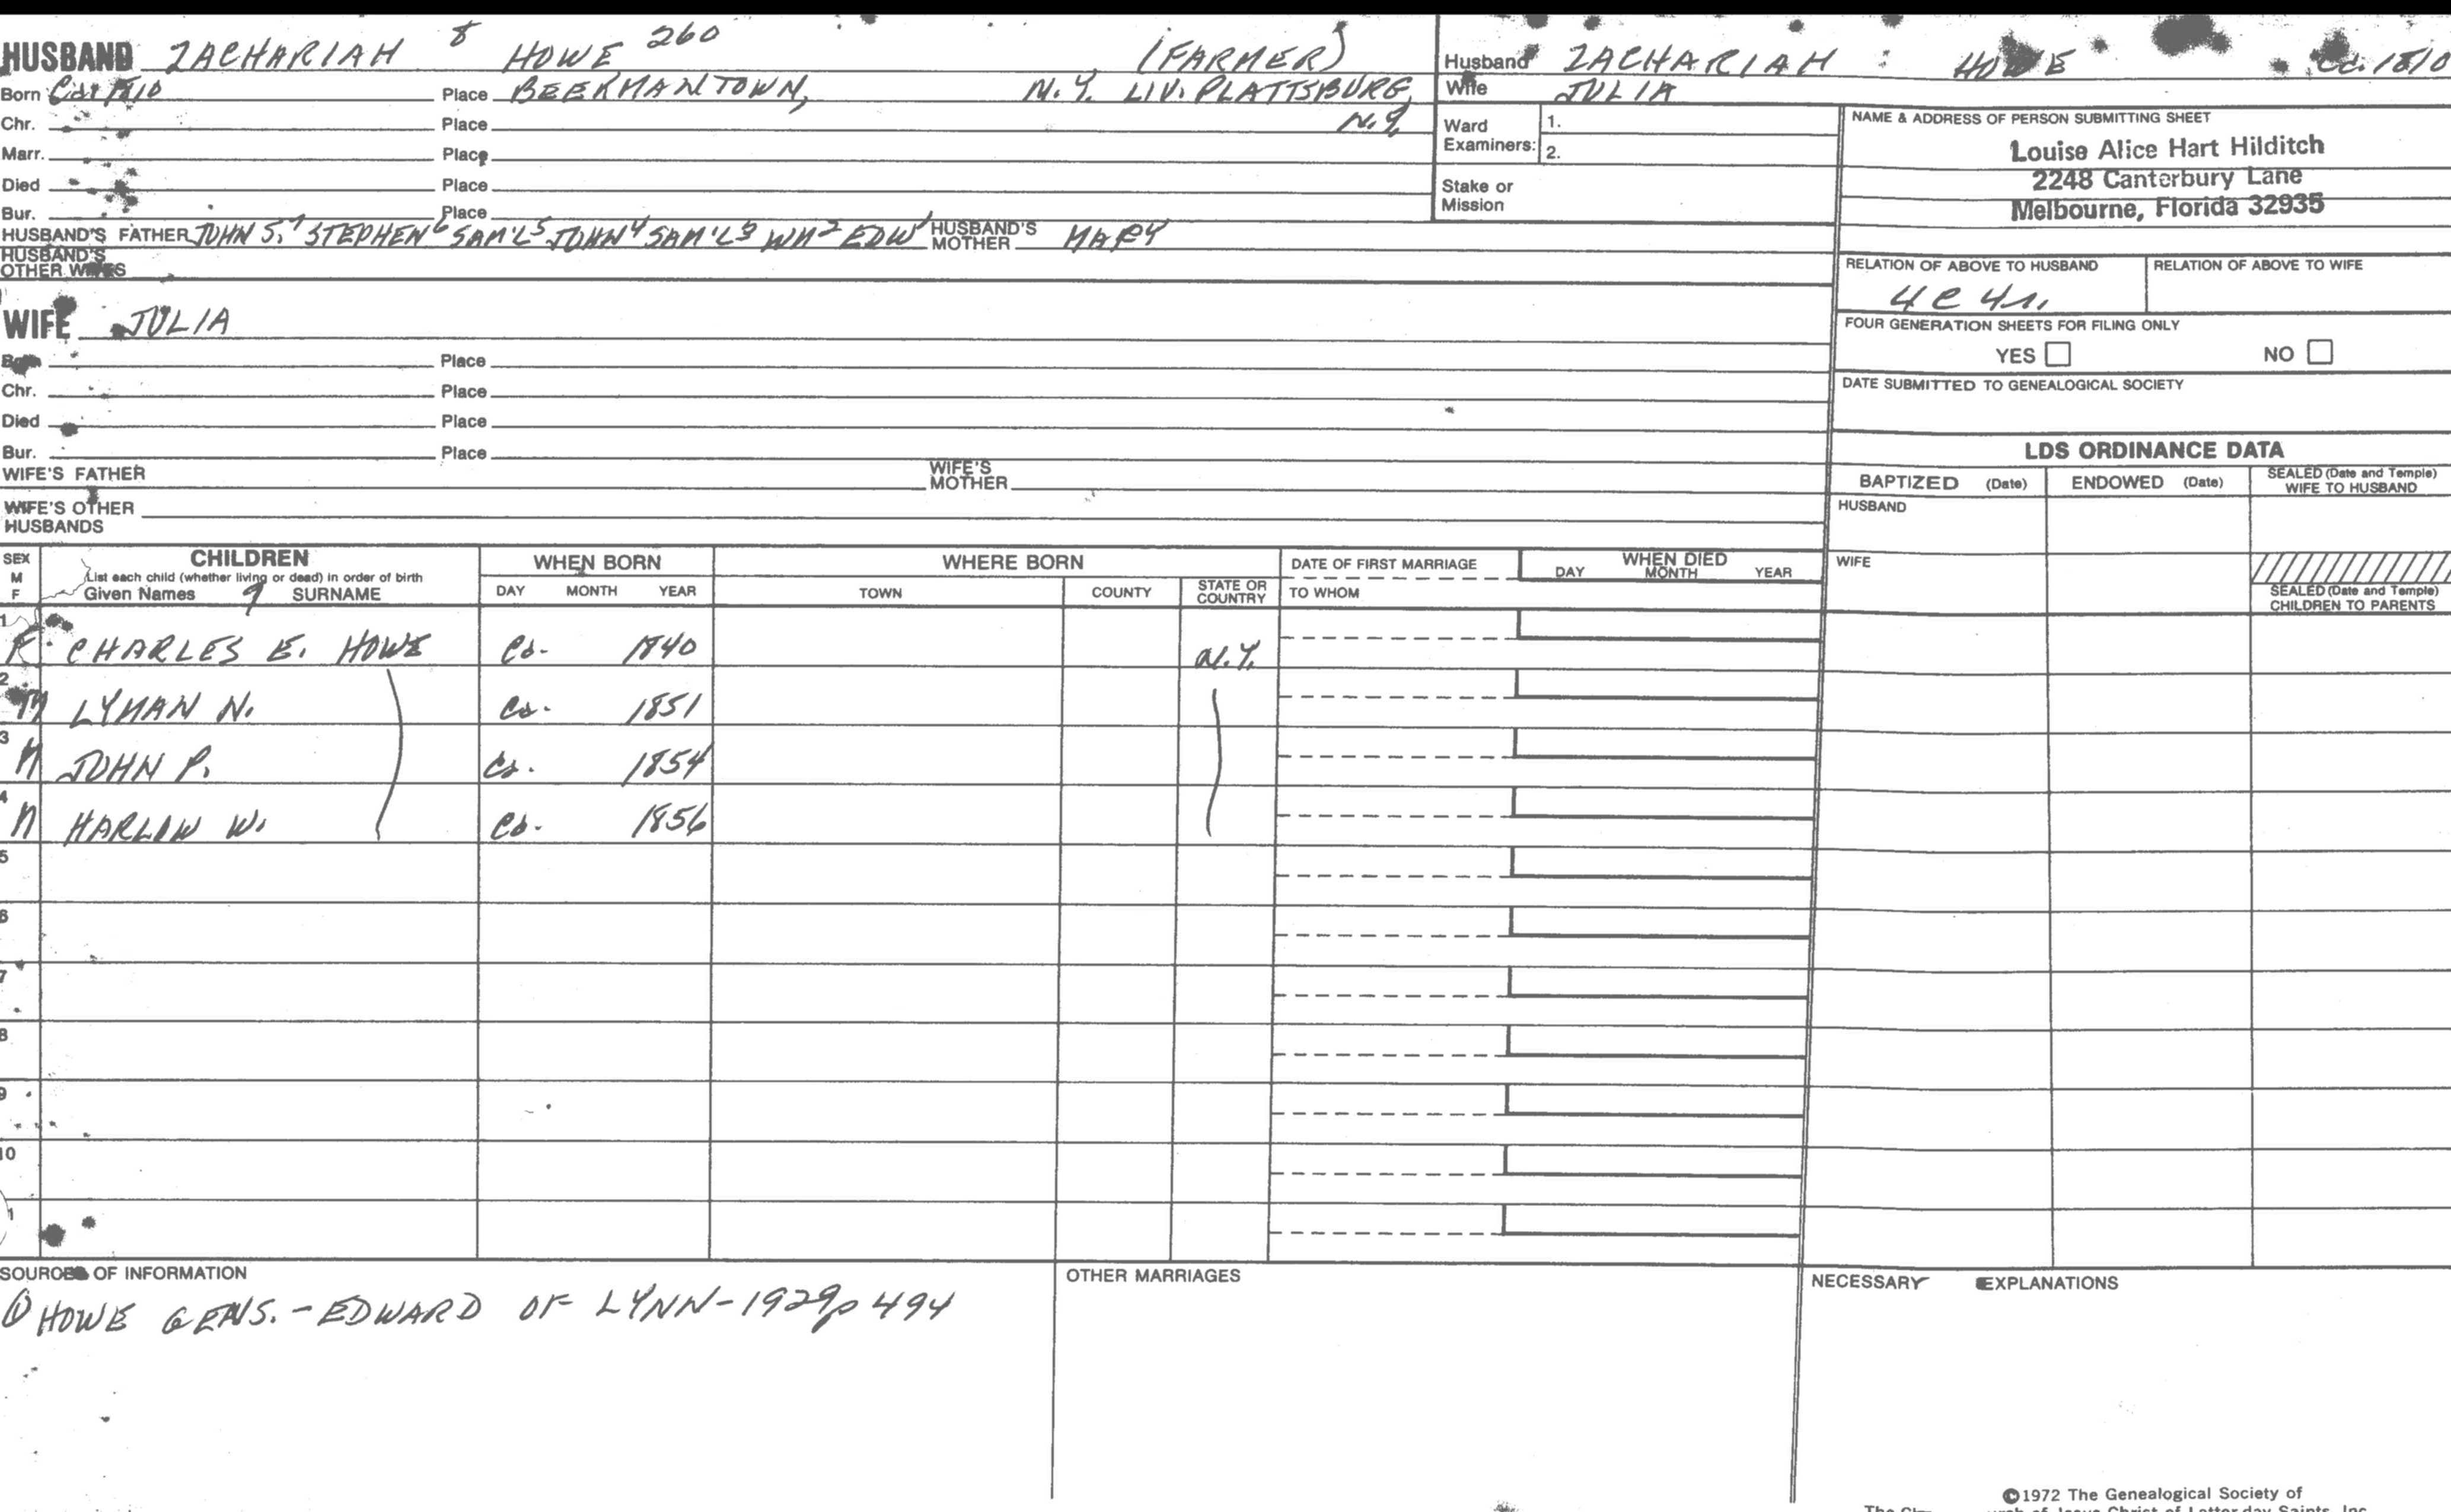 HUSBAND ZACHARIAH 8 HOWE 260 (FARMER)
Born Ca. 1810 Place BEEKMANTOWN, N.Y. LIV. PLATTSBURG,
Chr. Place N.Y.
Marr. Place
Died Place
Bur. Place
HUSBAND'S FATHER JOHN S.7 STEPHEN6 SAM'L5 JOHN4 SAM'L3 WM2 EDW1 HUSBAND'S MOTHER MARY
HUSBAND'S OTHER WIVES
Husband ZACHARIAH : HOWE Ca. 1810
Wife JULIA
Ward Examiners: 1.
2.
Stake or Mission
NAME & ADDRESS OF PERSON SUBMITTING SHEET
Louise Alice Hart Hilditch
2248 Canterbury Lane
Melbourne, Florida 32935
RELATION OF ABOVE TO HUSBAND RELATION OF ABOVE TO WIFE
4C 4r.
FOUR GENERATION SHEETS FOR FILING ONLY
YES NO
DATE SUBMITTED TO GENEALOGICAL SOCIETY
WIFE JULIA
Born Place
Chr. Place
Died Place
Bur. Place
WIFE'S FATHER WIFE'S MOTHER
WIFE'S OTHER HUSBANDS
LDS ORDINANCE DATA
BAPTIZED (Date) ENDOWED (Date) SEALED (Date and Temple) WIFE TO HUSBAND
HUSBAND
WIFE
SEALED (Date and Temple) CHILDREN TO PARENTS
SEX M F CHILDREN WHEN BORN WHERE BORN DATE OF FIRST MARRIAGE WHEN DIED
List each child (whether living or dead) in order of birth
Given Names 9 SURNAME DAY MONTH YEAR TOWN COUNTY STATE OR COUNTRY TO WHOM DAY MONTH YEAR
1 CHARLES E. HOWE Ca. 1840 N.Y.
2 M LYMAN N. Ca. 1851
3 M JOHN P. Ca. 1854
4 M HARLOW W. Ca. 1856
5
6
7
8
9
10
SOURCES OF INFORMATION OTHER MARRIAGES NECESSARY EXPLANATIONS
① HOWE GENS. - EDWARD OF LYNN - 1929 p 494
©1972 The Genealogical Society of